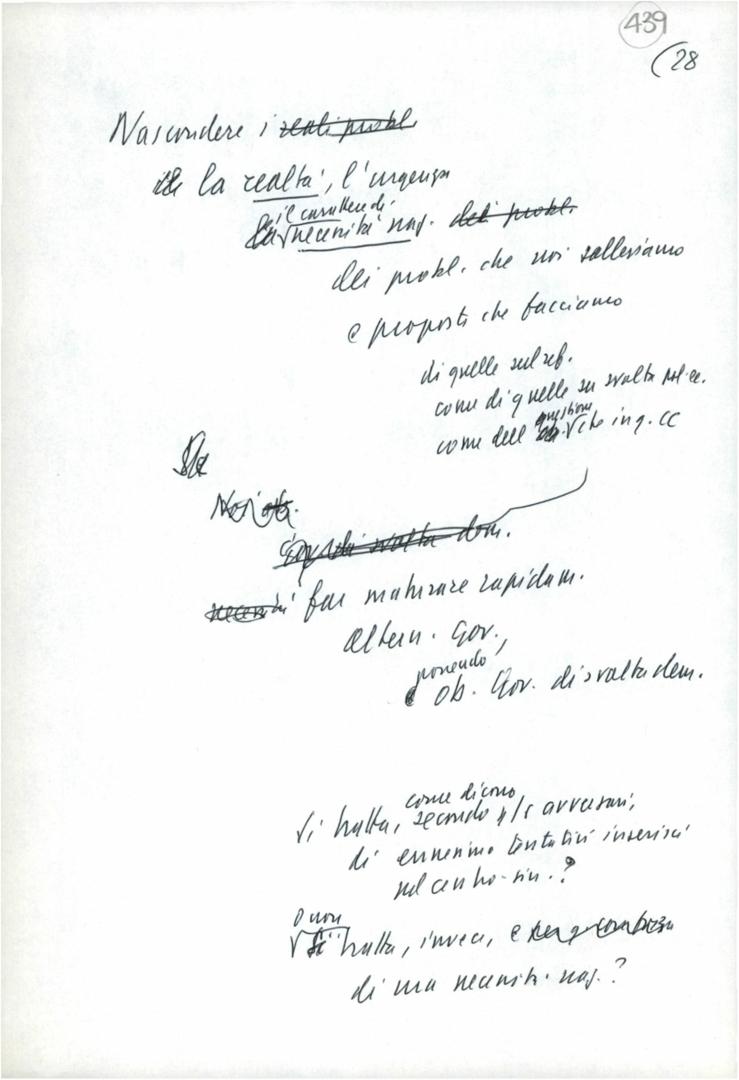 439
(28
Nascondere i reali probl.
la realtà, l'urgenza
il carattere di
necessità naz. dei probl.
dei probl. che noi solleviamo
e proposte che facciamo
di quelle sul
come di quelle su svolta pol. ec.
questione
come dell in q. CC
svolta dem.
far maturare rapidam.
altern. Gov.,
ponendo
ob. Gov. di svolta dem.
come dicono
Si tratta, secondo n/s avversari,
di ennesimo tentativi inserirci
nel centro-sin.?
O non
si tratta, invece, e
di una necessità naz.?